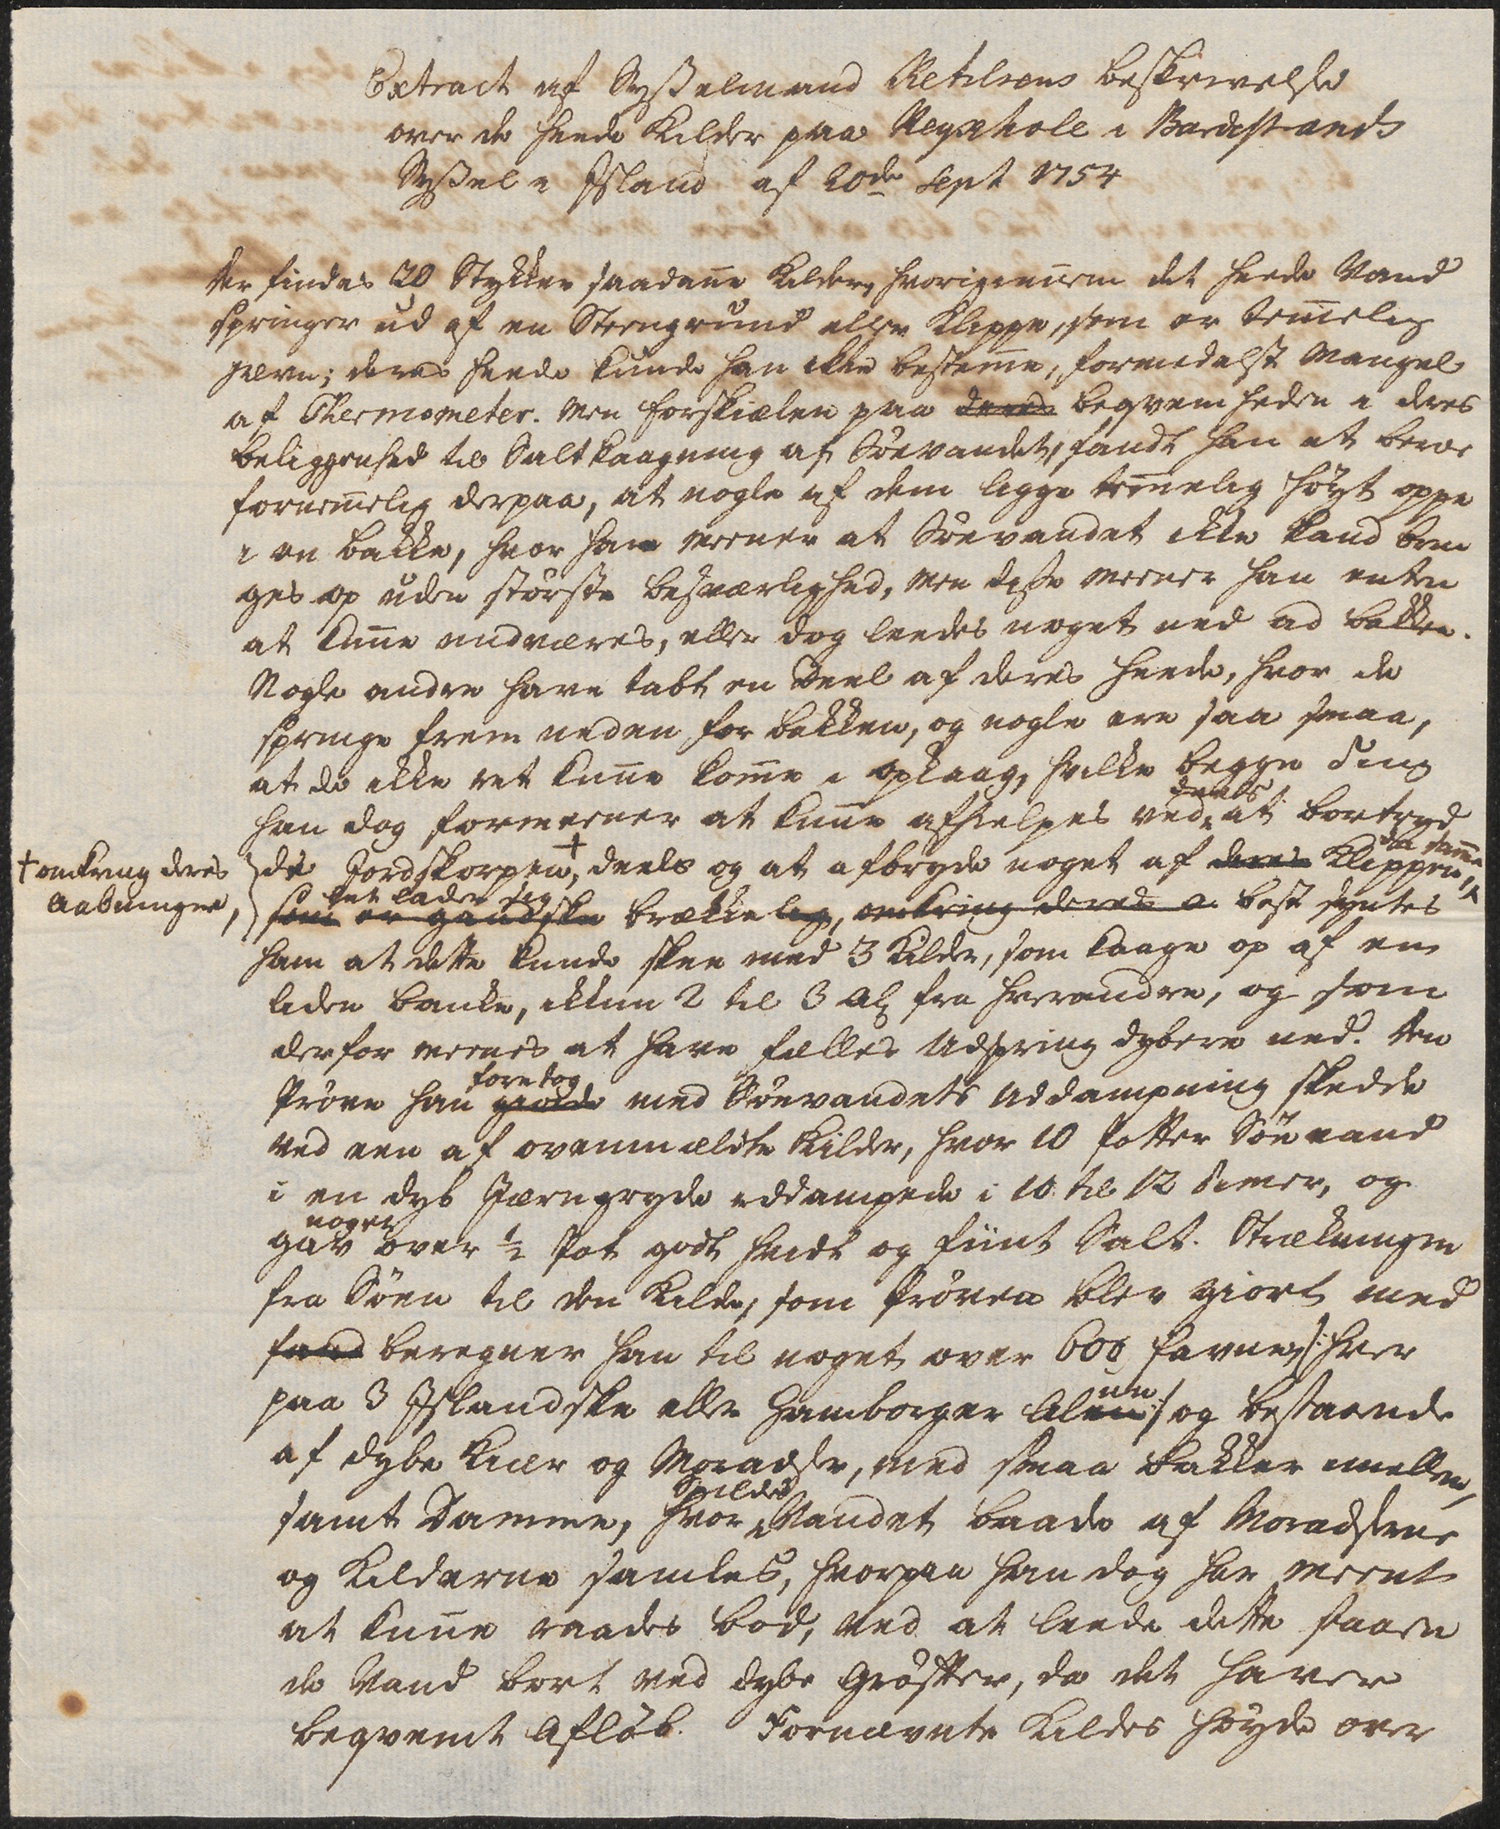 Extract af Sysselmand Ketilsens beskrivelse
over de heede Kilder paa Reykhole i Bardestrands
Syssel i Island af 20de Sept 1754
Der findes 20 Stykker saadane Kilder, hvorigiennem det heede Vand
springer ud af en Steengrund eller Klippe, som er temelig
jævn; deres heede kunde han ikke besteme, formedelst Mangel
af Thermometer. Men forskiælen paa deres beqvemheden i deres
beliggenhed til Saltkaagning af Söevandet, fandt han at beroe
fornemelig derpaa, at nogle af dem ligge temelig höyt oppe
i en bakke, hvor han meener at Söevandet ikke kand brin
ges op uden störste besværlighed, men disse meener han enten
at kune undværes, eller dog leedes noget ned ad bakken.
Nogle andre have tabt en Deel af deres heede, hvor de
springe frem neden for bakken, og nogle ere saa smaa,
at de ikke ret kune kome i opkaag, hvilke begge Ting
han dog formeener at kune afhielpes ved deels at bortryd
† omkring deres
Aabninger,
de Jordskorpen†, deels og at afbryde noget af deres Klippen,
som er gandske let lader sig brækkelig, omkring deres a best syntes
ham at dette kunde skee med 3 Kilder, som kaage op af en
liden banke, ikkun 2 til 3 Al fra hverandre, og som
derfor meenes at have fælles Udspring dybere ned. Den
Pröve han giorde foretog med Söevandets Uddampning skedde
ved een af ovenmældte Kilder, hvor 10 Potter Söevand
i en dyb Jærngryde uddampede i 10 til 12 Timer, og
gav noget over ½ Pot godt hvidt og fiint Salt. Strækningen
fra Söen til den Kilde, som Pröven blev giort med
fand beregner han til noget over 600 favne /: hver
paa 3 Islandske eller Hamborger Alen :/ og bestaaende
af dybe Kiær og Moradser, med smaa bakker imellem,
samt Damme, hvor Spildevandet baade af Moradserne
og Kilderne samles, hvorpaa han dog har meent
at kune raades bod, ved at leede dette staaen
de Vand bort ved dybe Gröfter, da det haver
beqvemt Aflöb. Fornævnte Kildes höyde over